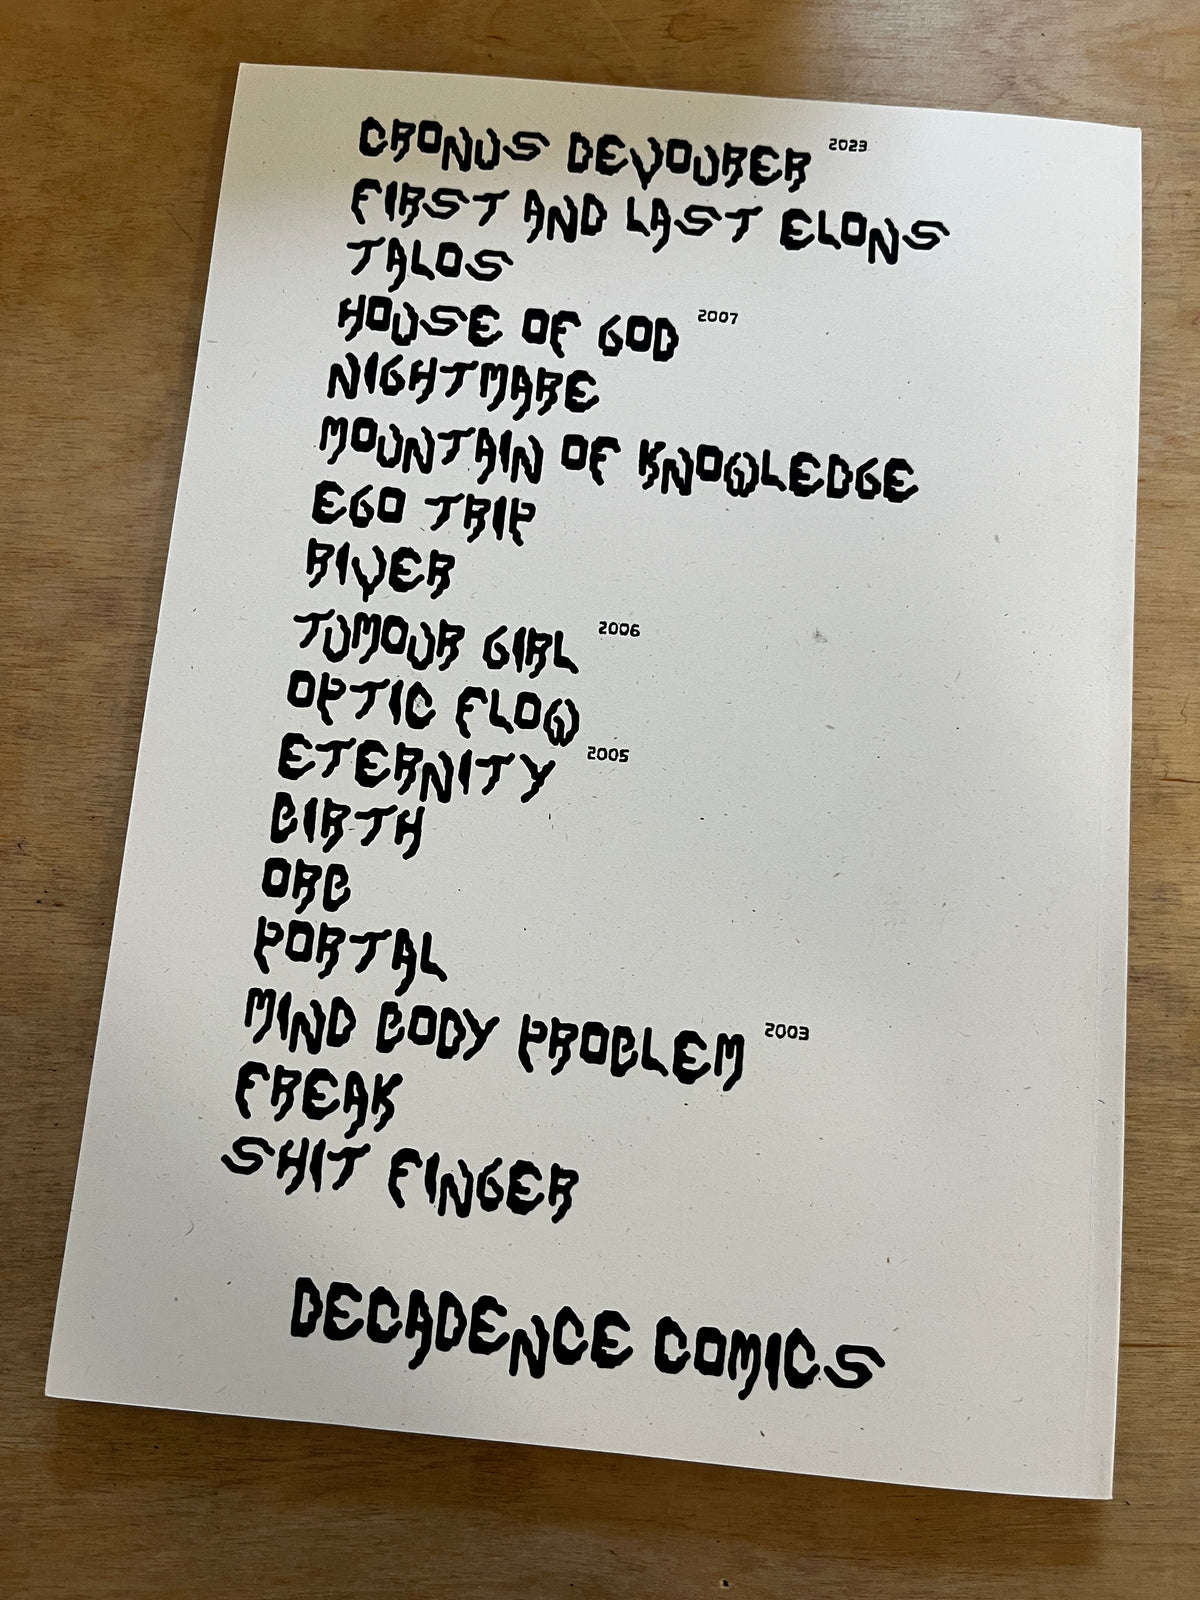 CRONUS DEVOURER 2023
FIRST AND LAST ELONS
TALOS
HOUSE OF GOD 2007
NIGHTMARE
MOUNTAIN OF KNOWLEDGE
EGO TRIP
RIVER
TUMOUR GIRL 2006
OPTIC FLOW
ETERNITY 2005
BIRTH
ORB
PORTAL
MIND BODY PROBLEM 2003
FREAK
SHIT FINGER
DECADENCE COMICS